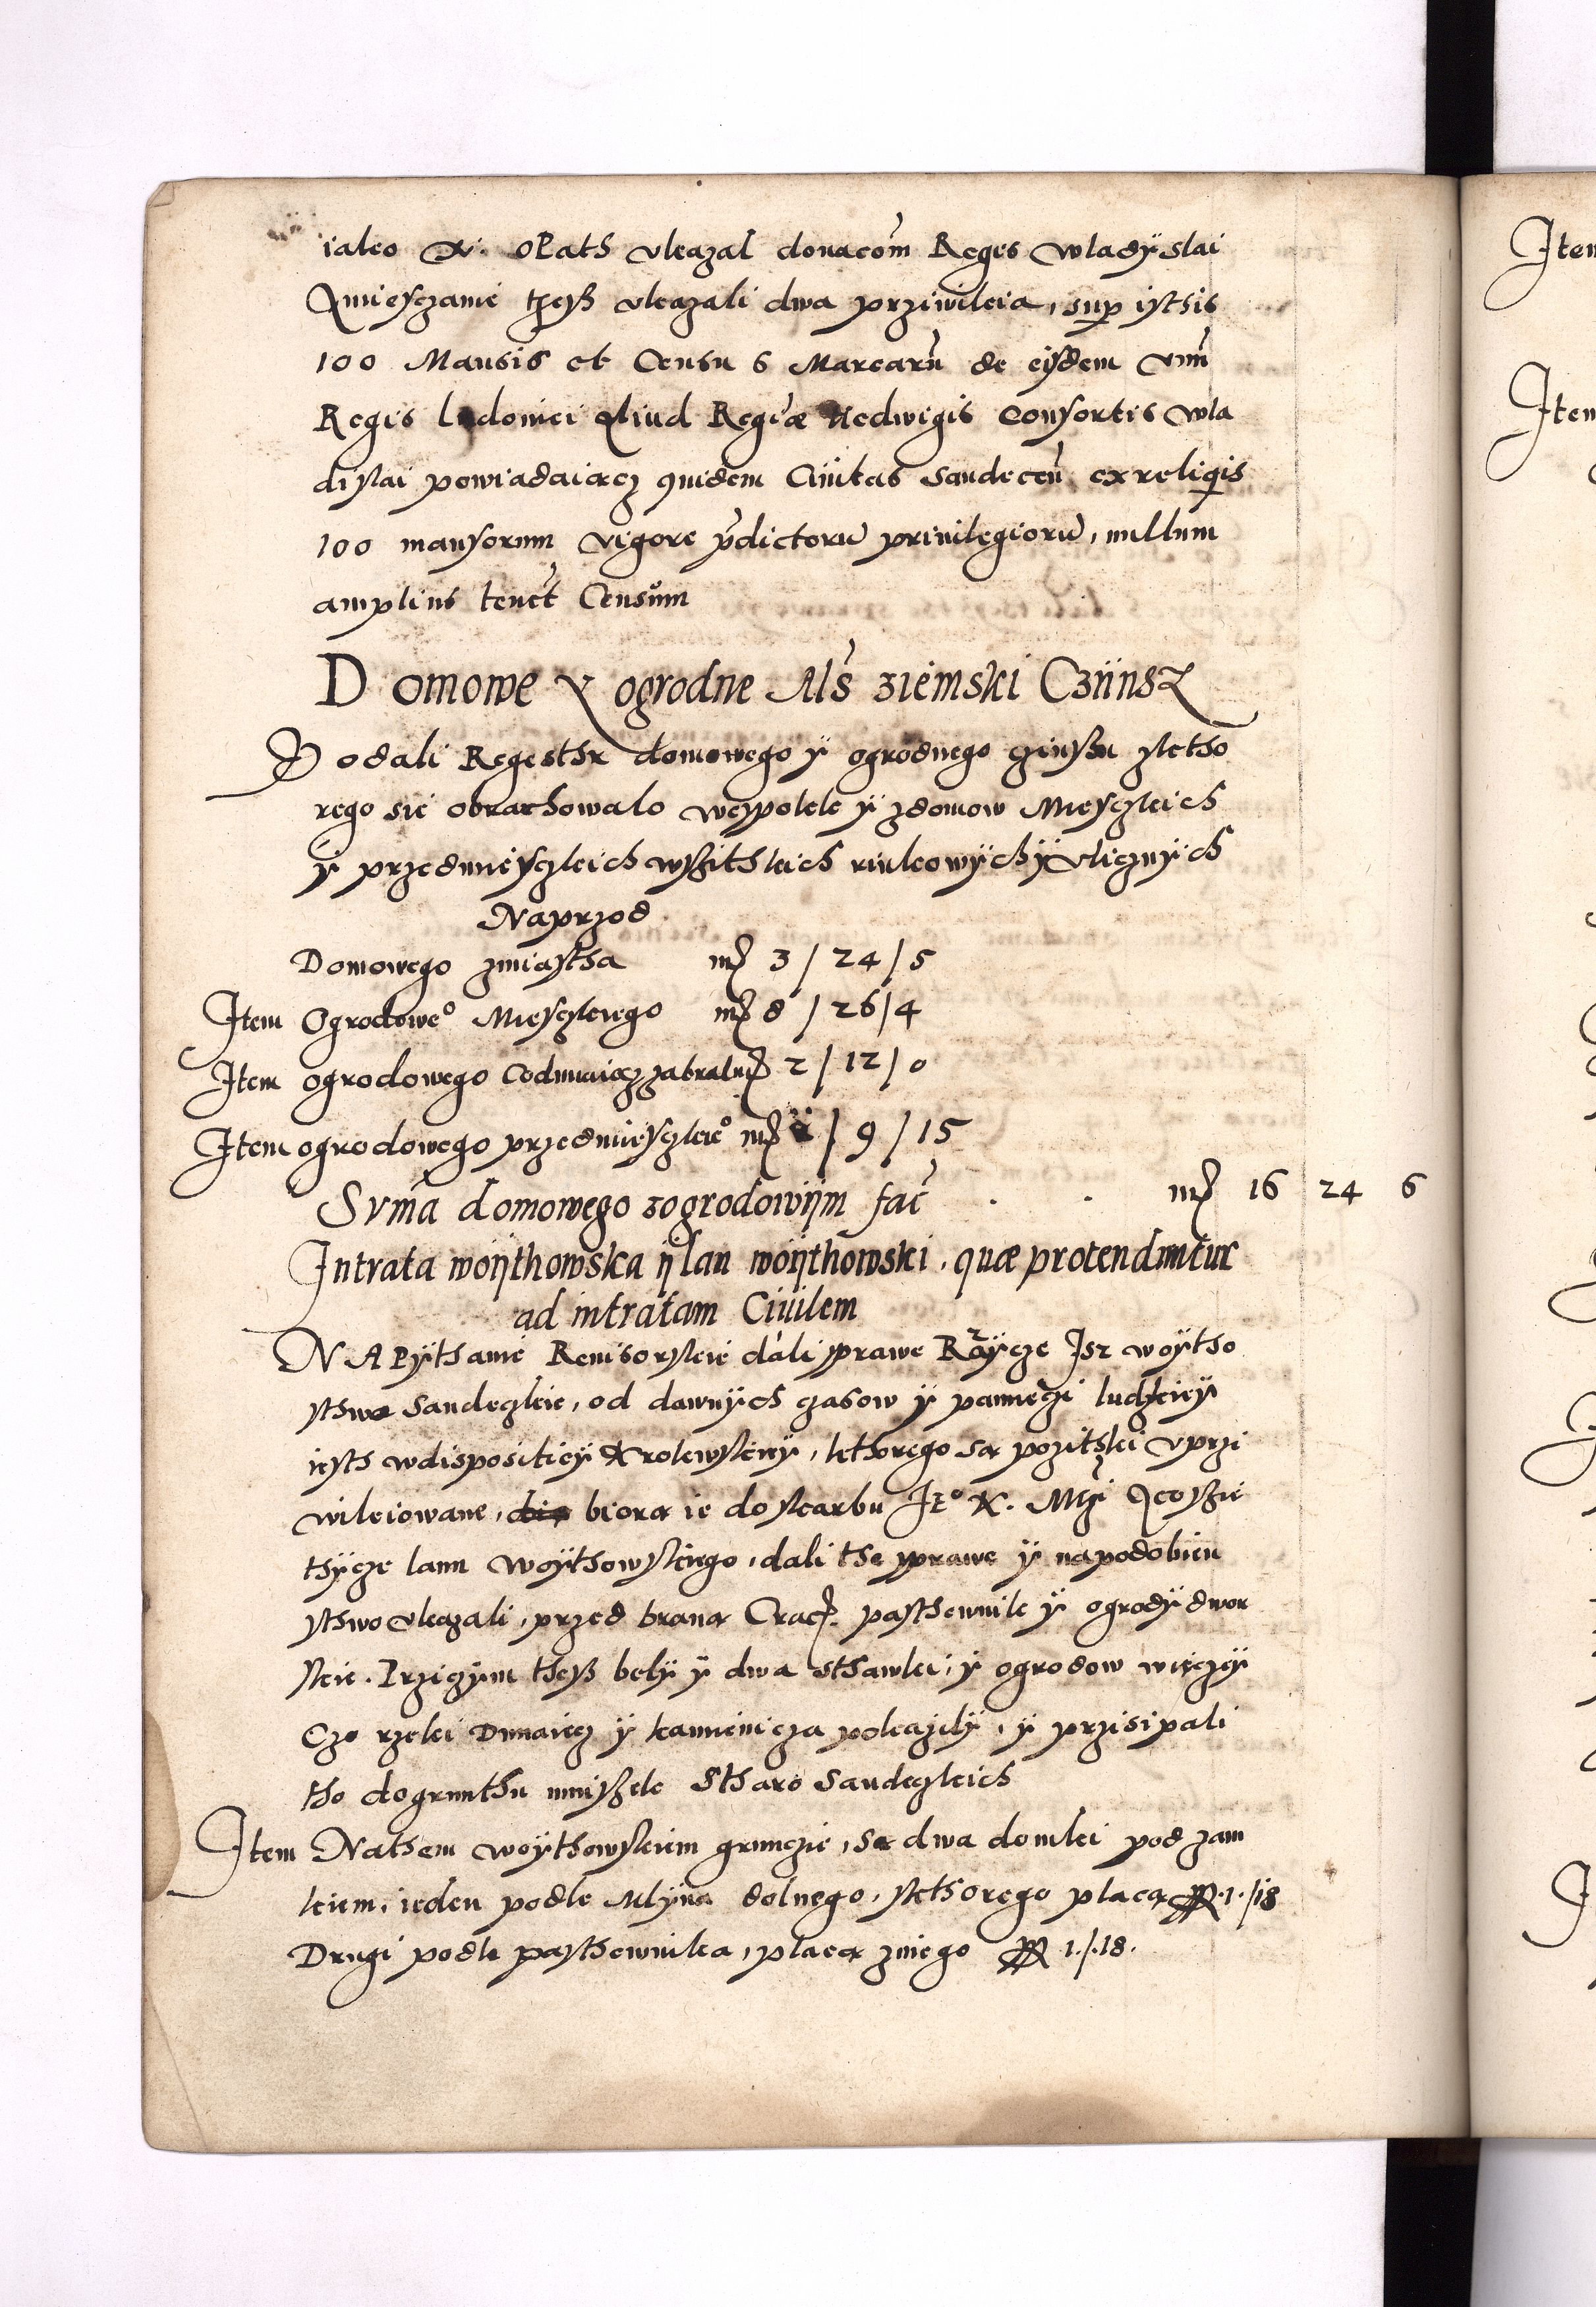 iako X. oPath vkazal donacom Reges Wladÿslai
Amiesczanie thesz vkazali dwa przivileia, sup istsis
100 Mansis et Censu 6 Marcaru de eisdem vnu
Regis Lodouici Aliud Regiæ Hedwigis Consortis Wla
dislai powiadaiącz quidem Ciuitas Sandecen ex reliqis
100 mansorum vigore pdictoru priuilegioru, nullum
amplius tenet Censum
Domowe Y ogrodne Als ziemski Czÿnsz
Podali Regesthr domowego ÿ ogrodnego czinszu sktho
rego sie obrachowalo wespolek ÿ zdomow Miesczkich
ÿ przedmiesczkich wszithkich rinkowÿch ÿ vlicznÿch
Naprzod
Domowego zmiastha mʒ 3 / 24 / 5
Item Ogrodoweo Miesczkiego mʒ 8 / 26 / 4
Item ogrodowego mʒ 2 / 12 / 0
Item ogrodowego przedmiesczkieo mʒ / 9 / 15
Svma domowego zogrodowÿm fac . . mʒ 16 24 6
Intrata woÿthowska ÿ lan woÿthowski, quæ protenduntur
ad intratam Ciuilem
NA Pÿthanie Reuisorskie dali sprawe Raÿcze Isz woÿtho
sthwo Sandeczkie, od dawnÿch czasow ÿ pamięczi ludzkieÿ
iesth wdispositieÿ Krolewskieÿ, kthorego są pozitzki vprzi
wileiowane, biorą ie do skarbu Je° K. Mczi Acoszie
thÿcze lanu Woÿthowskiego, dali the sprawe ÿ napodobien
sthwo vkazali, przed braną Crac. pasthewnik ÿ ogrodÿ dwor
skie. Prziczÿm thesz belÿ ÿ dwa sthawki, ÿ ogrodow więczeÿ
Czo rzeki Dunaiecz ÿ kamienicza pokazilÿ, ÿ przisipali
tho dogrunthu mniszek Stharo Sandeczkich
Item Nathem woÿthowskiem grunczie, są dwa domki pod zam
kiem, ieden podle Mlÿna dolnego, skthorego placą 1./18
Drugi podle pasthewnika, placą zniego 1./.18.